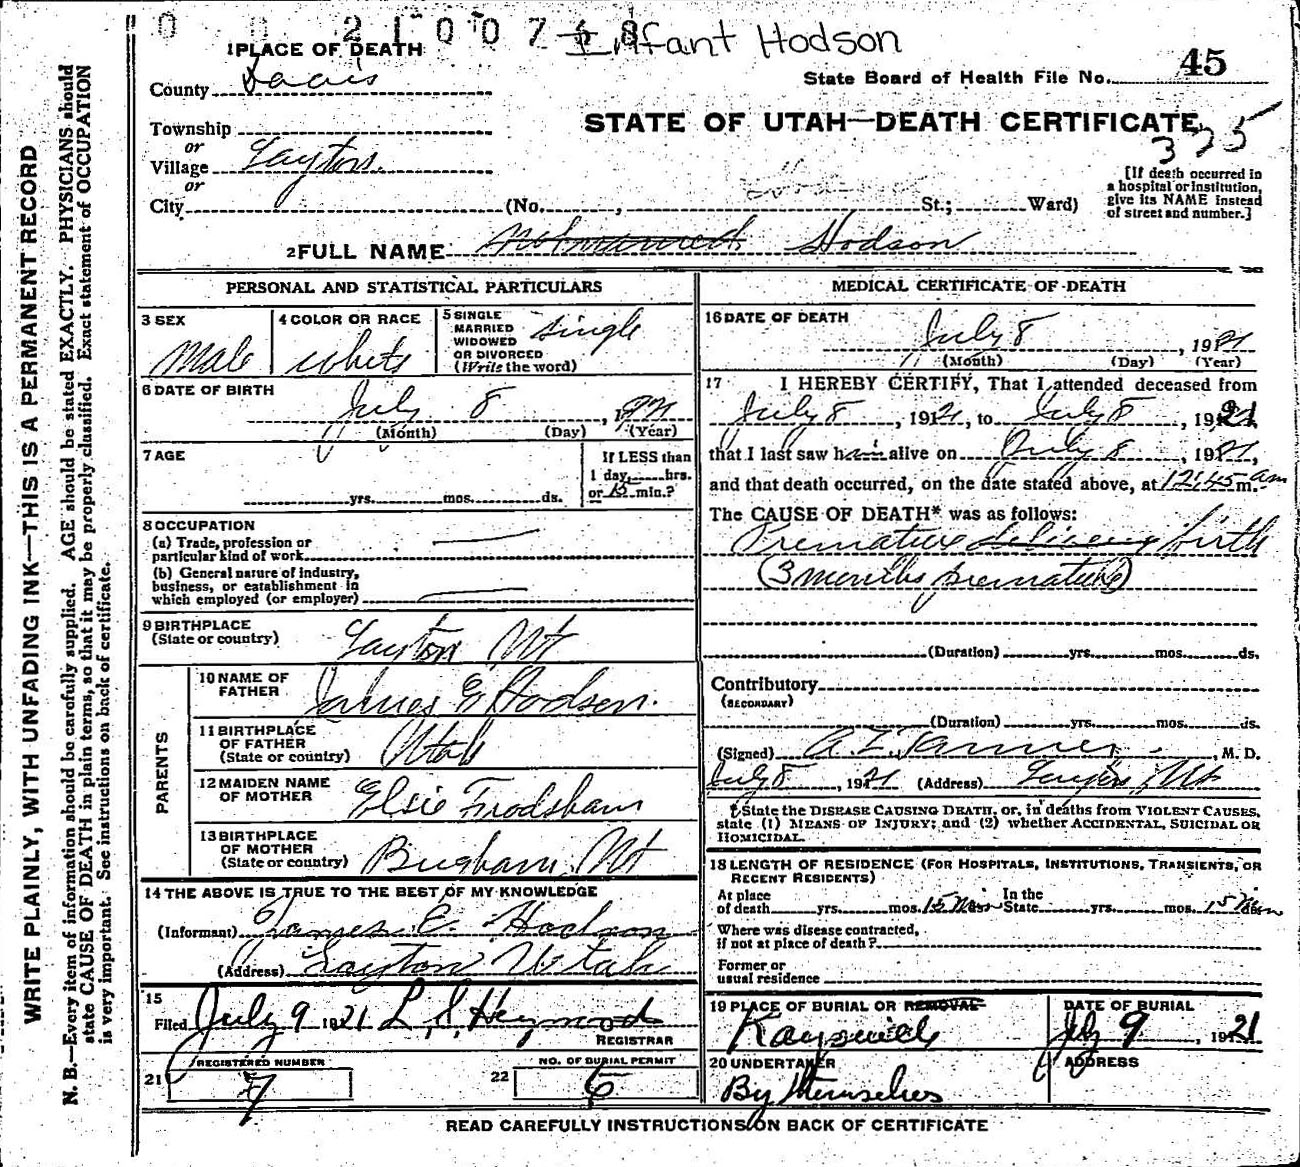 0 0 2 1 0 0 7 5 8 Infant Hodson
1 PLACE OF DEATH
State Board of Health File No. 45
County Davis
STATE OF UTAH—DEATH CERTIFICATE
325
Township
or
Village Layton.
or
City (No. , St.; Ward)
[If death occurred in
a hospital or institution,
give its NAME instead
of street and number.]
2 FULL NAME Not named Hodson
PERSONAL AND STATISTICAL PARTICULARS
3 SEX
Male
4 COLOR OR RACE
white
5 SINGLE
MARRIED
WIDOWED
OR DIVORCED
(Write the word)
single
6 DATE OF BIRTH
July 8, 1921
(Month) (Day) (Year)
7 AGE
yrs. mos. ds.
If LESS than
1 day, hrs.
or 15 min.?
8 OCCUPATION
(a) Trade, profession or
particular kind of work
(b) General nature of industry,
business, or establishment in
which employed (or employer)
9 BIRTHPLACE
(State or country)
Layton Ut
PARENTS
10 NAME OF
FATHER
James E Hodson.
11 BIRTHPLACE
OF FATHER
(State or country)
Utah
12 MAIDEN NAME
OF MOTHER
Elsie Frodsham
13 BIRTHPLACE
OF MOTHER
(State or country)
Brigham, Ut
14 THE ABOVE IS TRUE TO THE BEST OF MY KNOWLEDGE
(Informant) James E. Hodson
(Address) Layton Utah
15
Filed July 9 1921 L. S. Heywood
REGISTRAR
REGISTERED NUMBER
21 7
NO. OF BURIAL PERMIT
22 5
MEDICAL CERTIFICATE OF DEATH
16 DATE OF DEATH
July 8, 1921
(Month) (Day) (Year)
17 I HEREBY CERTIFY, That I attended deceased from
July 8, 1921, to July 8, 1921,
that I last saw him alive on July 8, 1921,
and that death occurred, on the date stated above, at 12:45 m. am
The CAUSE OF DEATH* was as follows:
Premature delivery birth
(3 months premature)
(Duration) yrs. mos. ds.
Contributory
(SECONDARY)
(Duration) yrs. mos. ds.
(Signed) A. Z. Tanner, M. D.
July 8, 1921 (Address) Layton, Ut
* State the DISEASE CAUSING DEATH, or, in deaths from VIOLENT CAUSES,
state (1) MEANS OF INJURY; and (2) whether ACCIDENTAL, SUICIDAL OR
HOMICIDAL.
18 LENGTH OF RESIDENCE (FOR HOSPITALS, INSTITUTIONS, TRANSIENTS, OR
RECENT RESIDENTS)
At place
of death yrs. mos. 15 Min
In the
State yrs. mos. 15 Min
Where was disease contracted,
if not at place of death?
Former or
usual residence
19 PLACE OF BURIAL OR REMOVAL
Kaysville
DATE OF BURIAL
July 9, 1921
20 UNDERTAKER
By themselves
ADDRESS
READ CAREFULLY INSTRUCTIONS ON BACK OF CERTIFICATE
WRITE PLAINLY, WITH UNFADING INK—THIS IS A PERMANENT RECORD
N. B.—Every item of information should be carefully supplied. AGE should be stated EXACTLY. PHYSICIANS should
state CAUSE OF DEATH in plain terms, so that it may be properly classified. Exact statement of OCCUPATION
is very important. See instructions on back of certificate.